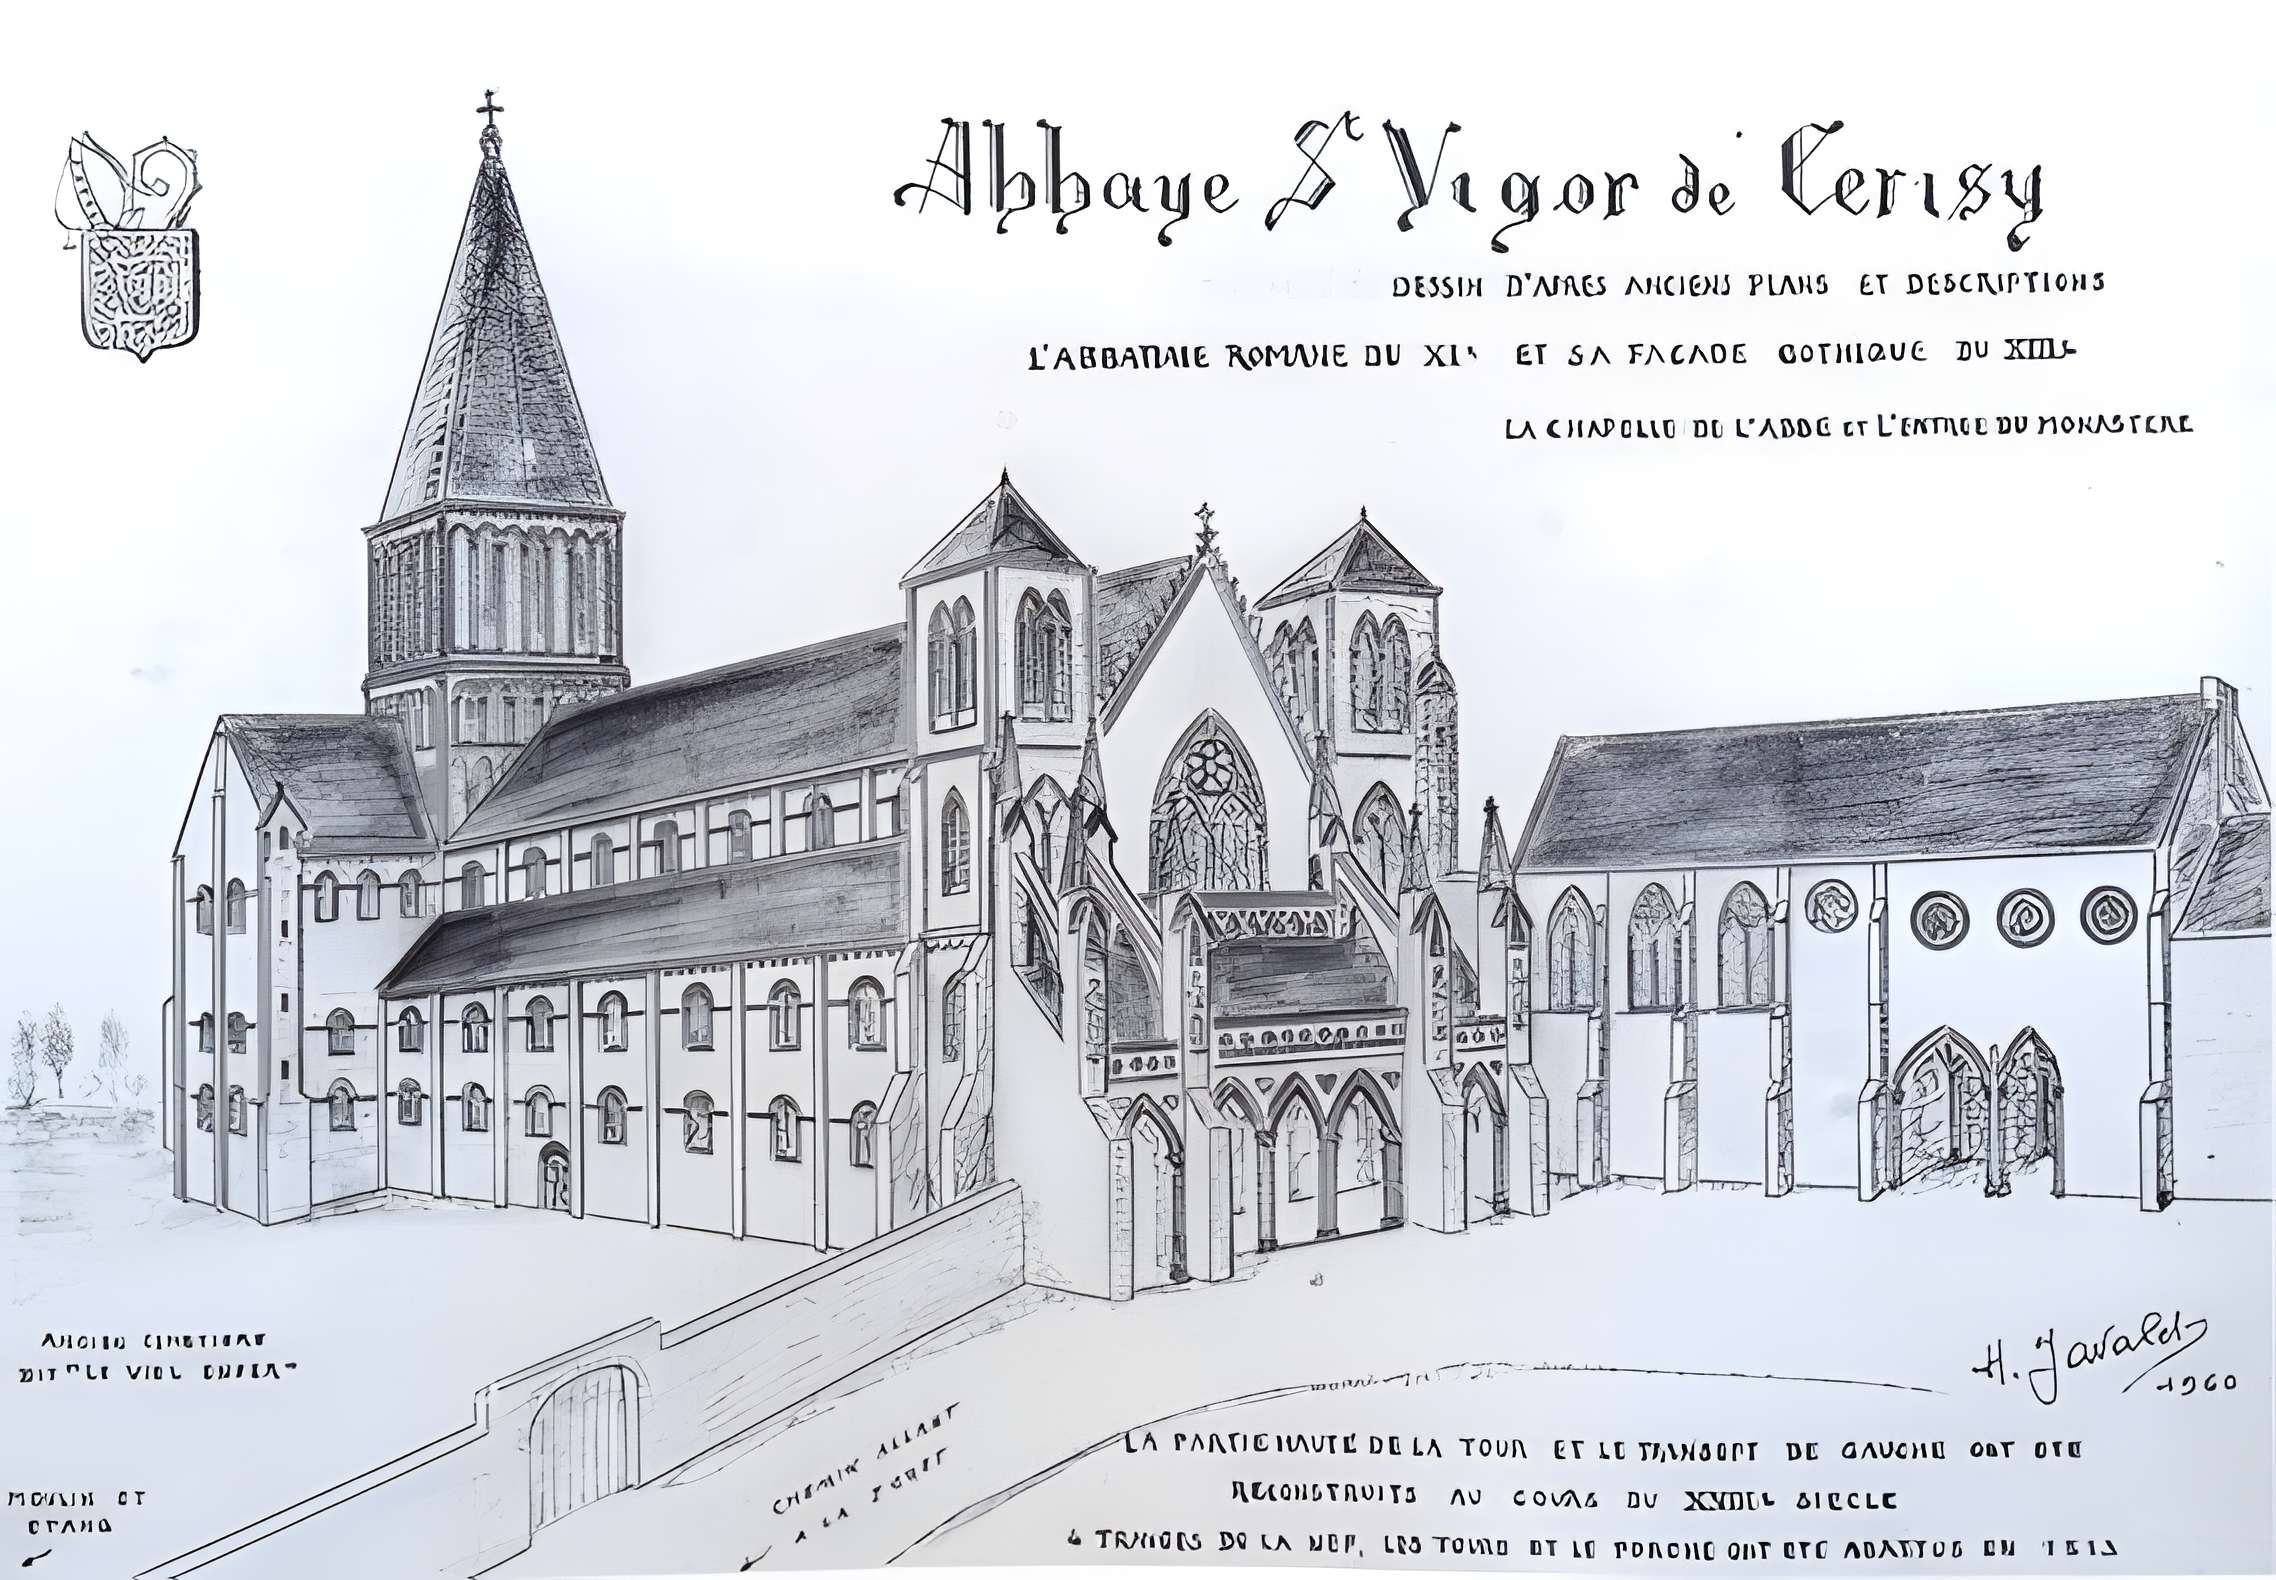 Abbaye St Vigor de Cerisy
DESSIN D'APRES ANCIENS PLANS ET DESCRIPTIONS
L'ABBATIALE ROMANE DU XIe ET SA FACADE GOTHIQUE DU XIIIe
LA CHAPELLE DE L'ABBE ET L'ENTREE DU MONASTERE
ANCIEN CIMETIERE
DIT "LE VIEL
MOULIN ET
ETANG
CHEMIN ALLANT
A LA FORET
H. Javald
1960
LA PARTIE HAUTE DE LA TOUR ET LE TRANSEPT DE GAUCHE ONT ETE
RECONSTRUITS AU COURS DU XVIIIe SIECLE
4 TRAVEES DE LA NEF, LES TOURS ET LE PORCHE ONT ETE ABATTUS EN